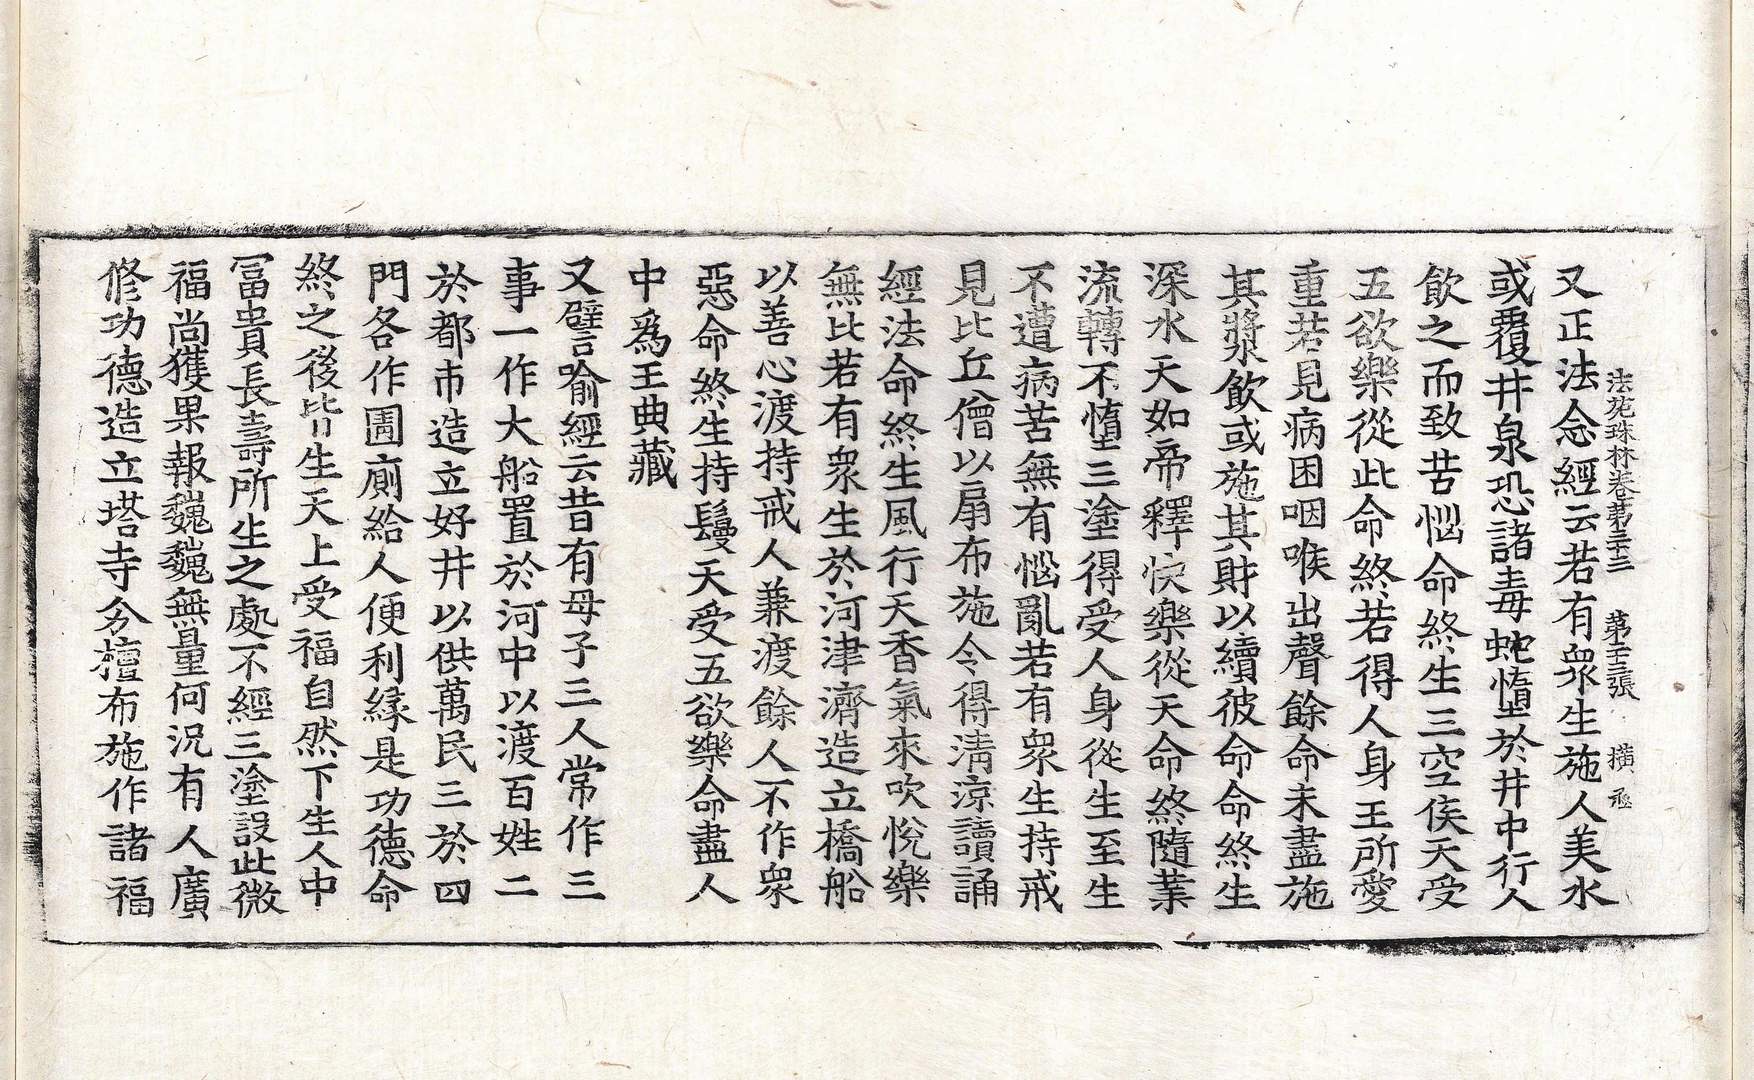 法苑珠林卷第三十三 第二十三張 撗 函
又正法念經云若有衆生施人美水
或覆井泉恐諸毒蛇墮於井中行人
飲之而致苦惱命終生三空俟天受
五欲樂從此命終若得人身王所愛
重若見病困咽喉出聲餘命未盡施
其漿飲或施其財以續彼命命終生
深水天如帝釋快樂從天命終隨業
流轉不墮三塗得受人身從生至生
不遭病苦無有惱亂若有衆生持戒
見比丘僧以扇布施令得清涼讀誦
經法命終生風行天香氣來吹悅樂
無比若有衆生於河津濟造立橋船
以善心渡持戒人兼渡餘人不作衆
惡命終生持鬘天受五欲樂命盡人
中爲王典藏
又譬喻經云昔有母子三人常作三
事一作大船置於河中以渡百姓二
於都市造立好井以供萬民三於四
門各作圊廁給人便利緣是功德命
終之後皆生天上受福自然下生人中
冨貴長壽所生之處不經三塗設此微
福尚獲果報巍巍無量何況有人廣
修功德造立塔寺分檀布施作諸福